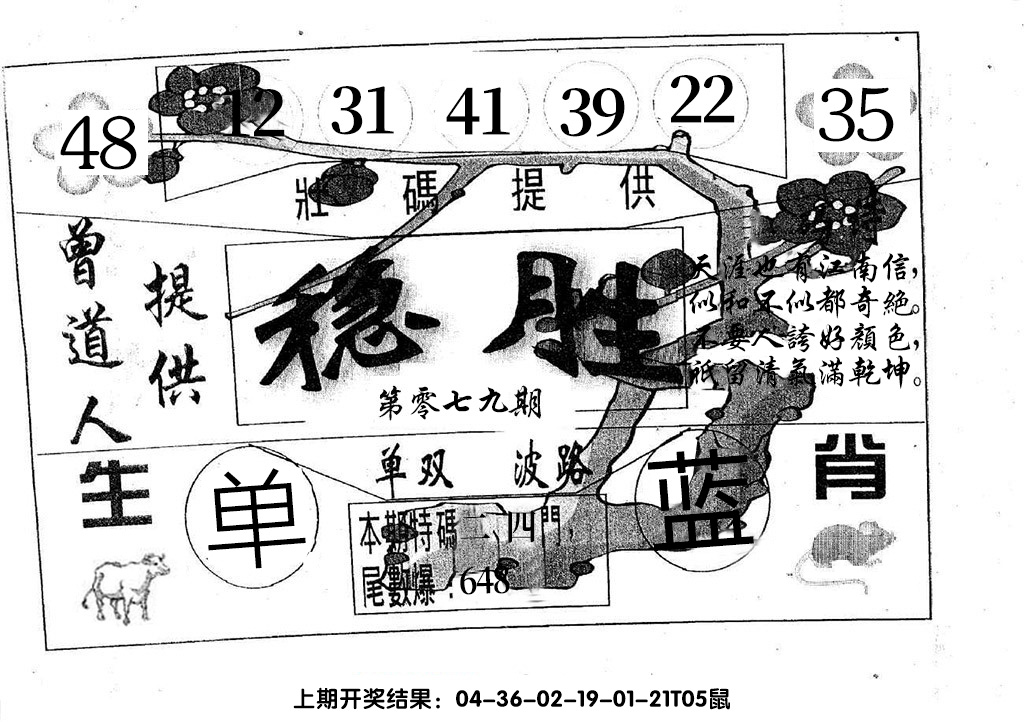 48 12 31 41 39 22 35
壯碼提供
特
曾道人
提供
稳胜
第零七九期
天涯也有江南信，
似和不似都奇絕。
不要人誇好顏色，
祇留清氣滿乾坤。
单双 波路
生肖
单
蓝
本期特碼二、四門，
尾數爆：648
上期开奖结果：04-36-02-19-01-21T05鼠